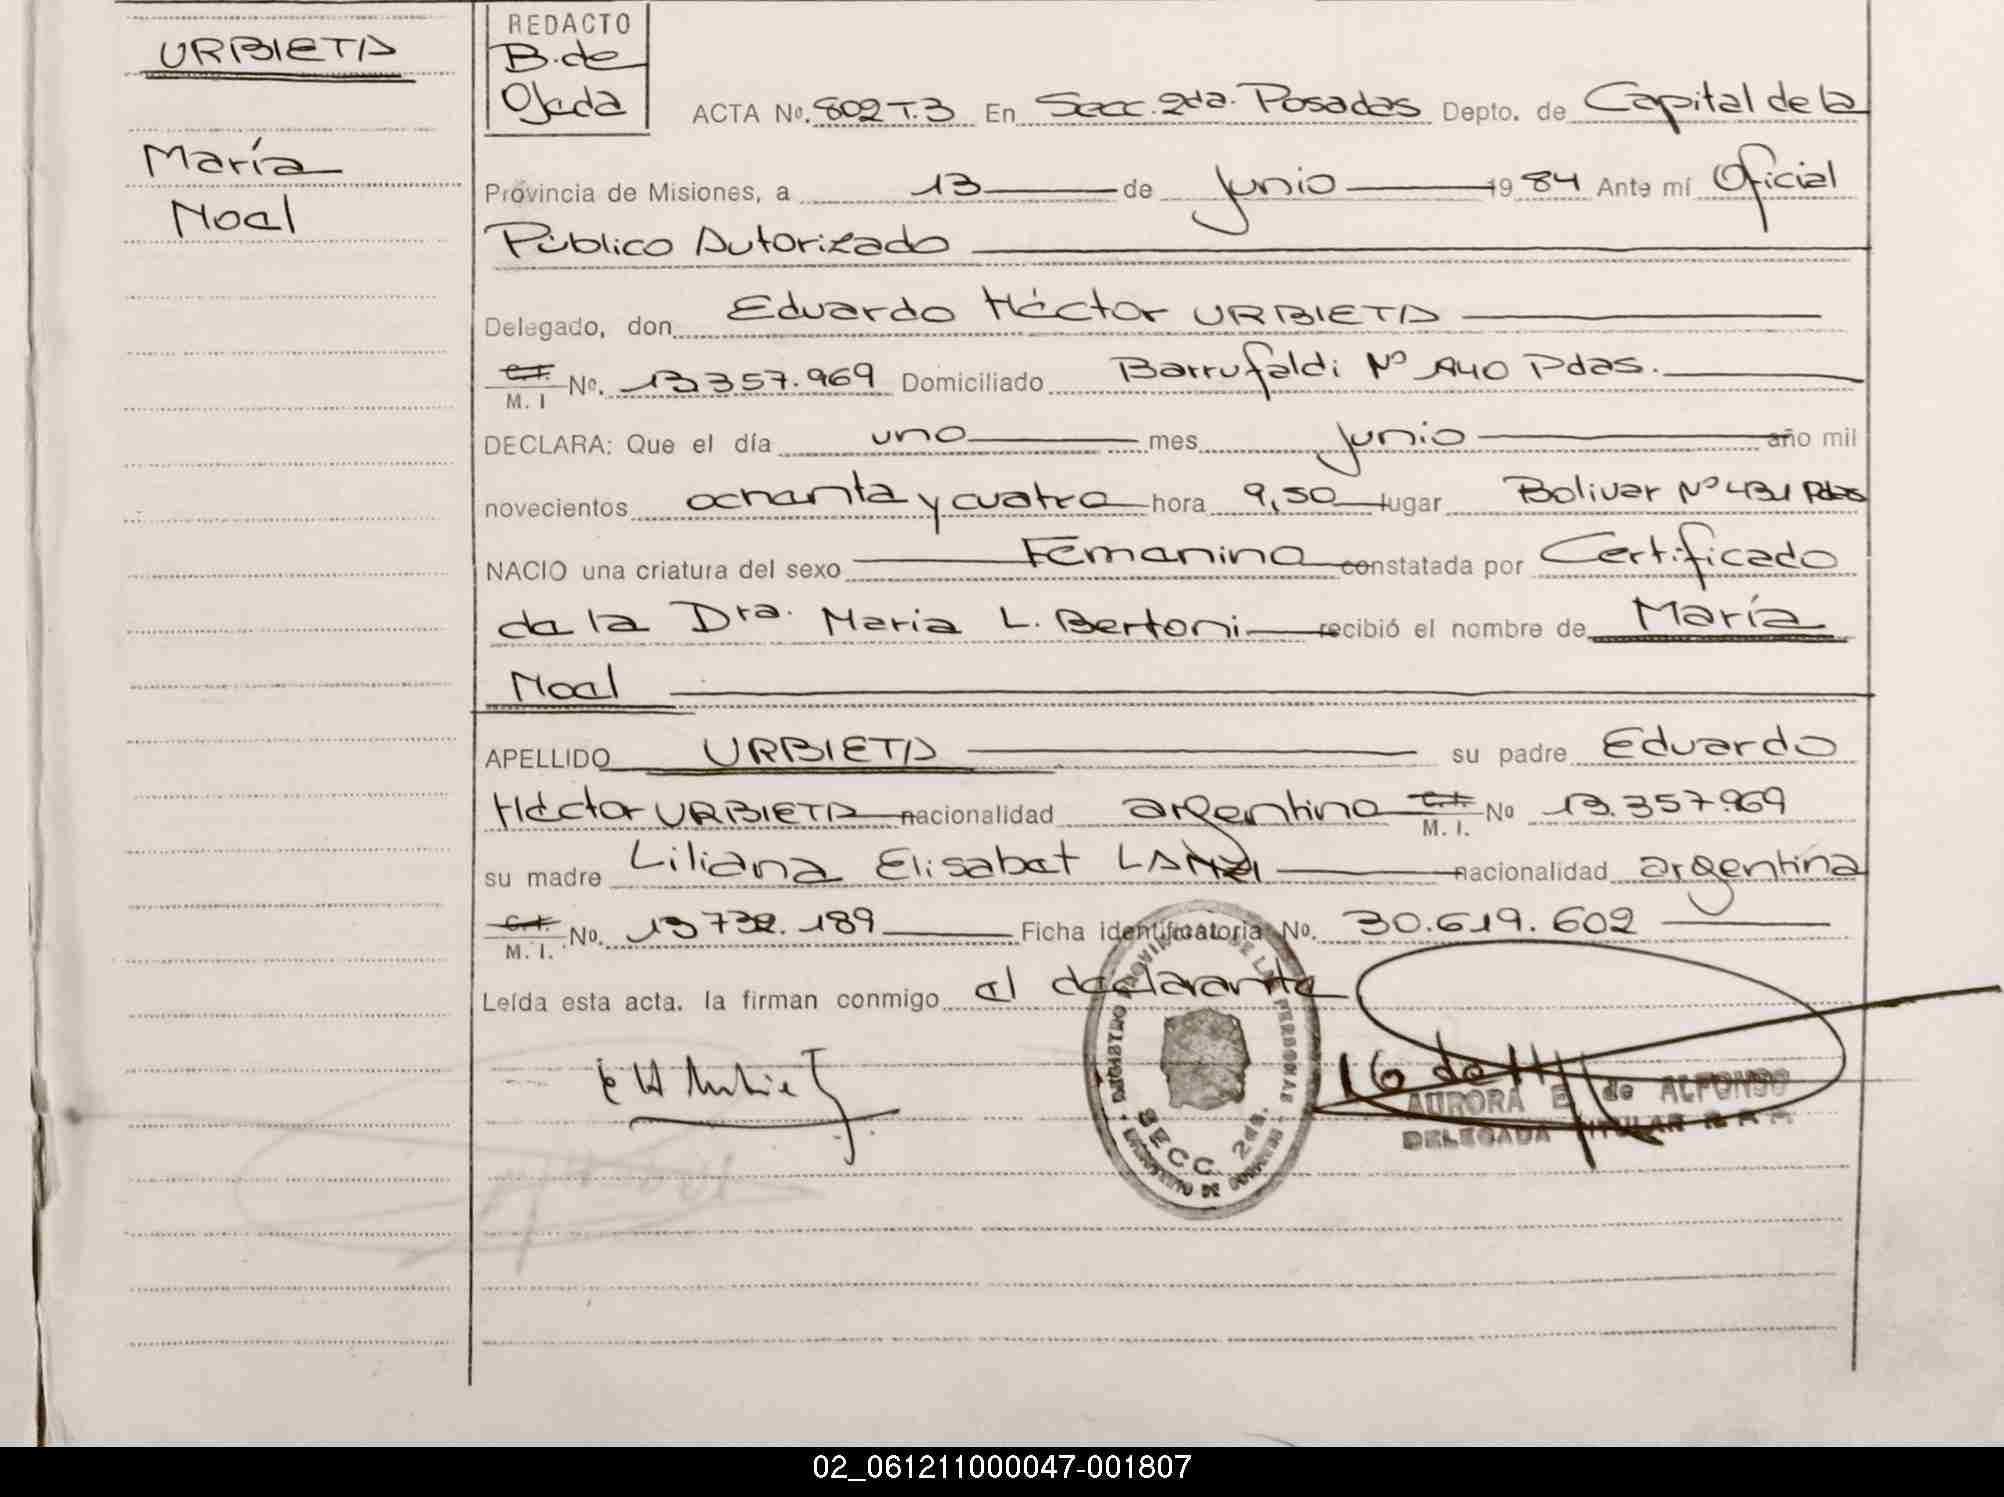 URBIETA
María
Noel
REDACTO
B. de
Ojeda
ACTA No. 802 T. 3 En Secc. 2da. Posadas Depto. de Capital de la
Provincia de Misiones, a 13 de junio 1984 Ante mí Oficial
Público Autorizado
Delegado, don Eduardo Héctor URBIETA
C.I. M. I No. 13.357.969 Domiciliado Barrufaldi Nº 140 Pdas.
DECLARA: Que el día uno mes junio año mil
novecientos ochenta y cuatro hora 9,50 lugar Bolivar Nº 431 Pdas
NACIO una criatura del sexo Femenino constatada por Certificado
de la Dra. Maria L. Bertoni recibió el nombre de María
Noel
APELLIDO URBIETA su padre Eduardo
Héctor URBIETA nacionalidad argentino C.I. M. I. No 13.357.969
su madre Liliana Elisabet LANZI nacionalidad argentina
C.I. M. I. No. 13.732.189 Ficha identificatoria No. 30.619.602
Leída esta acta. la firman conmigo el declarante
REGISTRO PROVINCIAL DE LAS PERSONAS
SECC. 2da.
AURORA E de ALFONSO
DELEGADA TITULAR
02_061211000047-001807